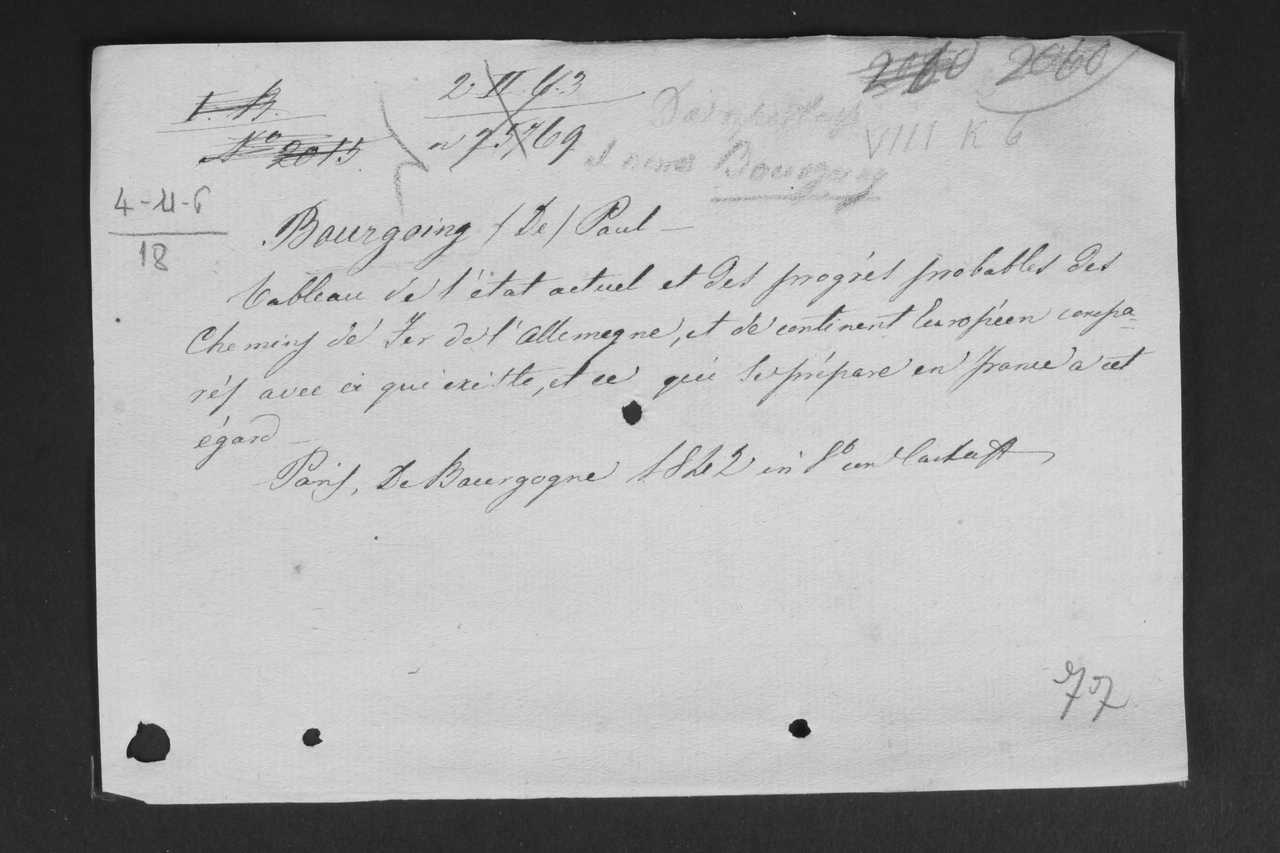 2060 2060
I. B.
2. II. G. 3
No 2015
n 75769
VIII K 6
Bourgoing
4-11-6
18
Bourgoing (De) Paul —
Tableau de l'état actuel et des progrès probables des
Chemins de Fer de l'Allemagne, et de continent Européen compa-
rés avec ce qui existe, et ce qui se prépare en france a cet
égard —
Paris, De Bourgogne 1842 in 8o un
77